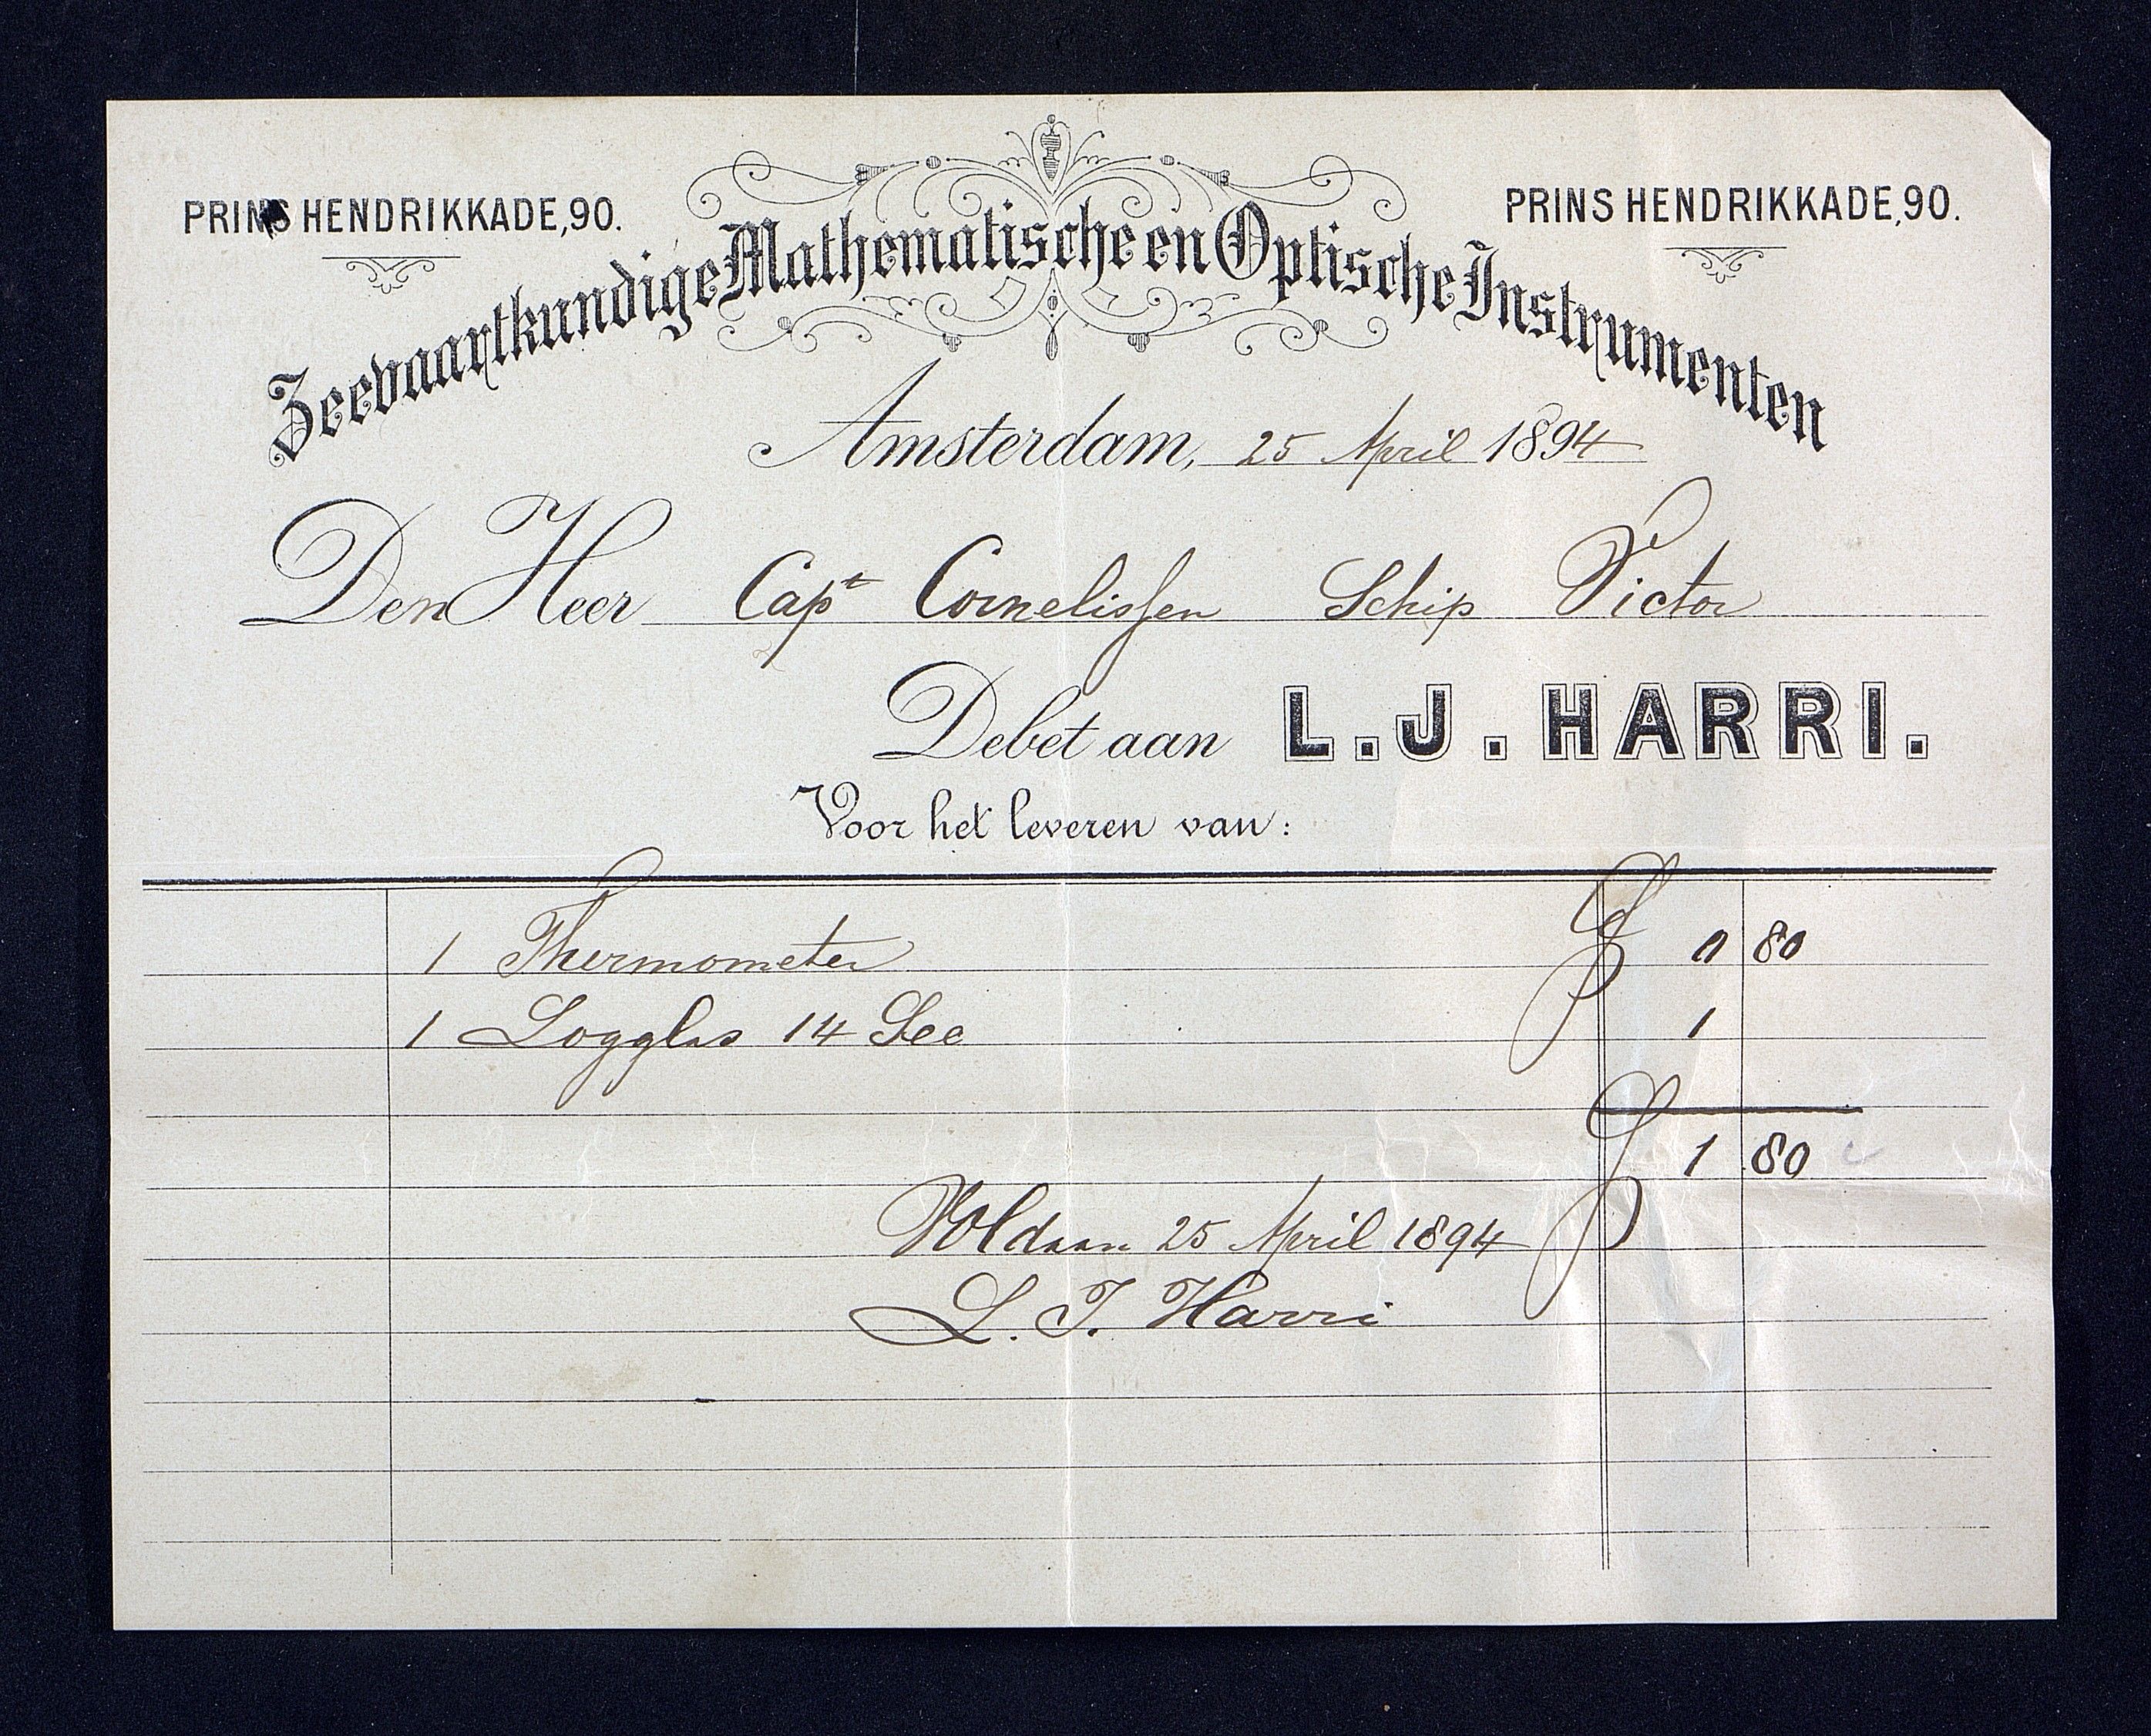 PRINS HENDRIKKADE, 90.
PRINS HENDRIKKADE, 90.
Zeevaartkundige Mathematische en Optische Instrumenten
Amsterdam, 25 April 1894
Den Heer Capt Cornelissen Schip Victor
Debet aan L. J. HARRI.
Voor het leveren van:
1 Thermometer ƒ 0 80
1 Logglas 14 Sec 1
ƒ 1 80
Voldaan 25 April 1894
L. J. Harri